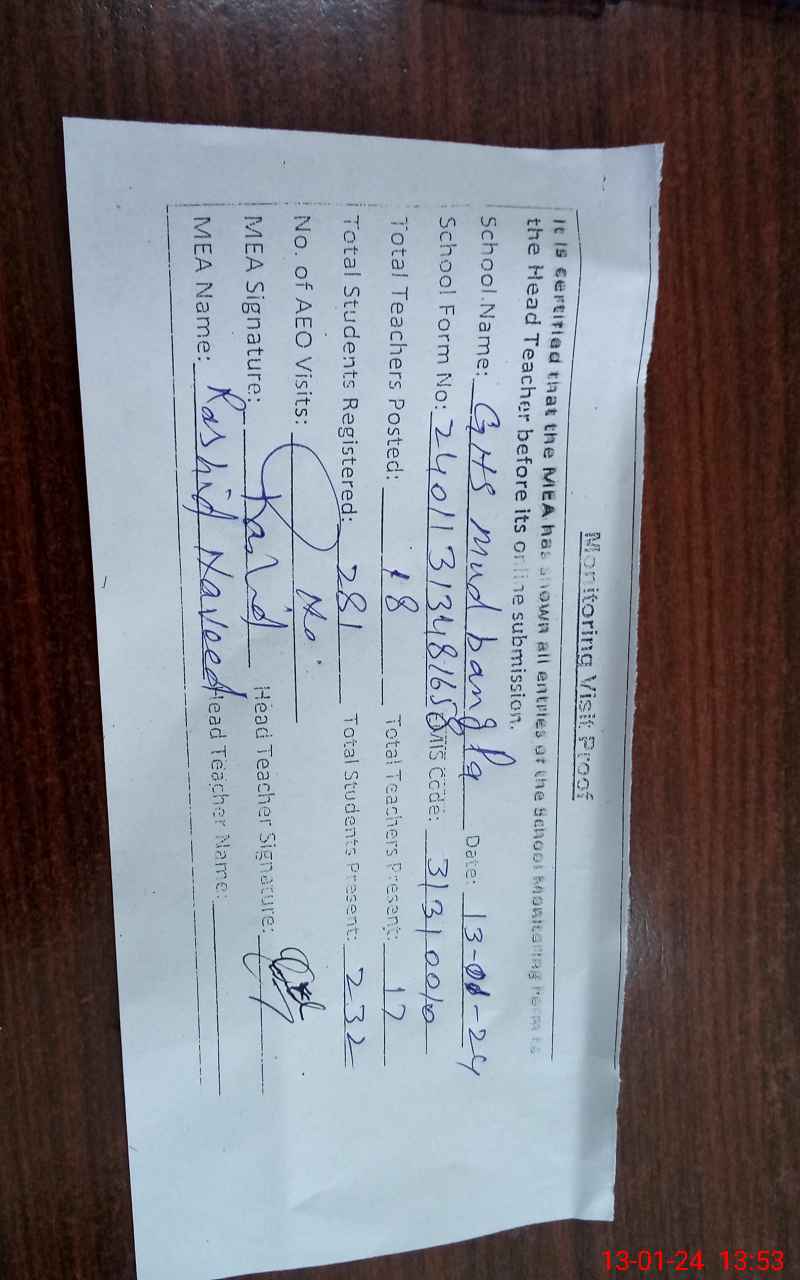 Monitoring Visit Proof
It is certified that the MEA has shown all entries of the School Monitoring Form to
the Head Teacher before its online submission.
School Name: GHS Mud bangla Date: 13-01-24
School Form No: 24011313481658 EMIS Code: 31310010
Total Teachers Posted: 18 Total Teachers Present: 17
Total Students Registered: 281 Total Students Present: 232
No. of AEO Visits: No.
MEA Signature: Rashid Head Teacher Signature:
MEA Name: Rashid Naveed Head Teacher Name:
13-01-24 13:53